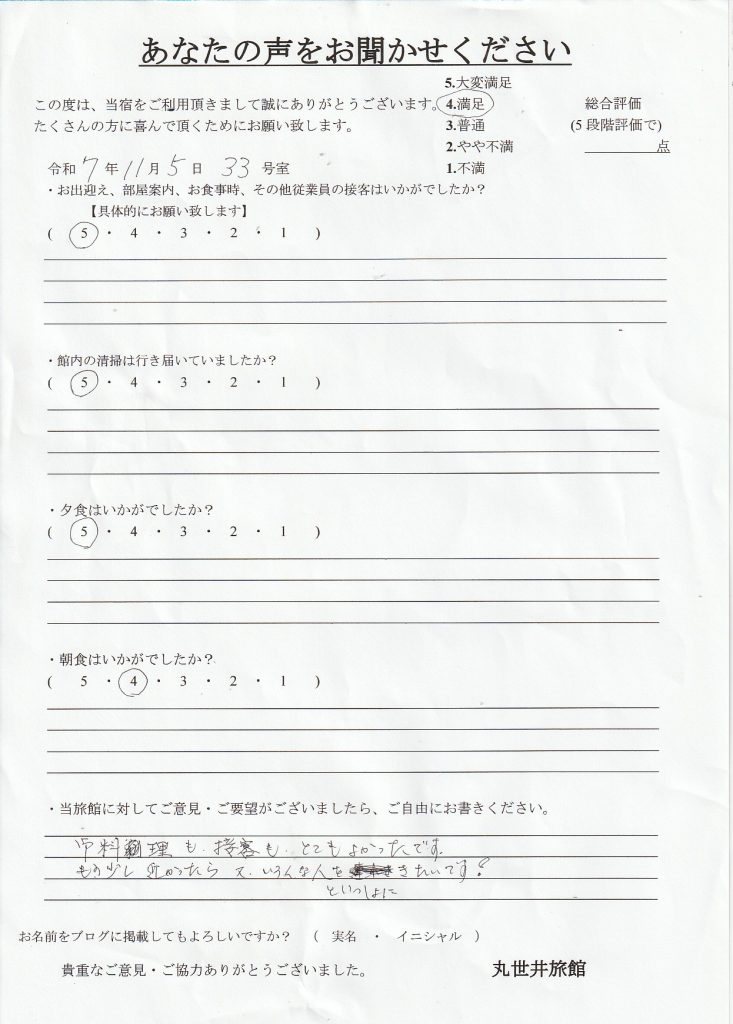 あなたの声をお聞かせください
5.大変満足
この度は、当宿をご利用頂きまして誠にありがとうございます。 4.満足 総合評価
たくさんの方に喜んで頂くためにお願い致します。 3.普通 (5段階評価で)
2.やや不満 点
令和7年11月5日 33号室 1.不満
・お出迎え、部屋案内、お食事時、その他従業員の接客はいかがでしたか?
【具体的にお願い致します】
( 5 ・ 4 ・ 3 ・ 2 ・ 1 )
・館内の清掃は行き届いていましたか?
( 5 ・ 4 ・ 3 ・ 2 ・ 1 )
・夕食はいかがでしたか?
( 5 ・ 4 ・ 3 ・ 2 ・ 1 )
・朝食はいかがでしたか?
( 5 ・ 4 ・ 3 ・ 2 ・ 1 )
・当旅館に対してご意見・ご要望がございましたら、ご自由にお書きください。
料理も、接客も、とてもよかったです。
もう少し近かったら又、いろんな人を きたいです!
といっしょに
お名前をブログに掲載してもよろしいですか? ( 実名 ・ イニシャル )
貴重なご意見・ご協力ありがとうございました。 丸世井旅館